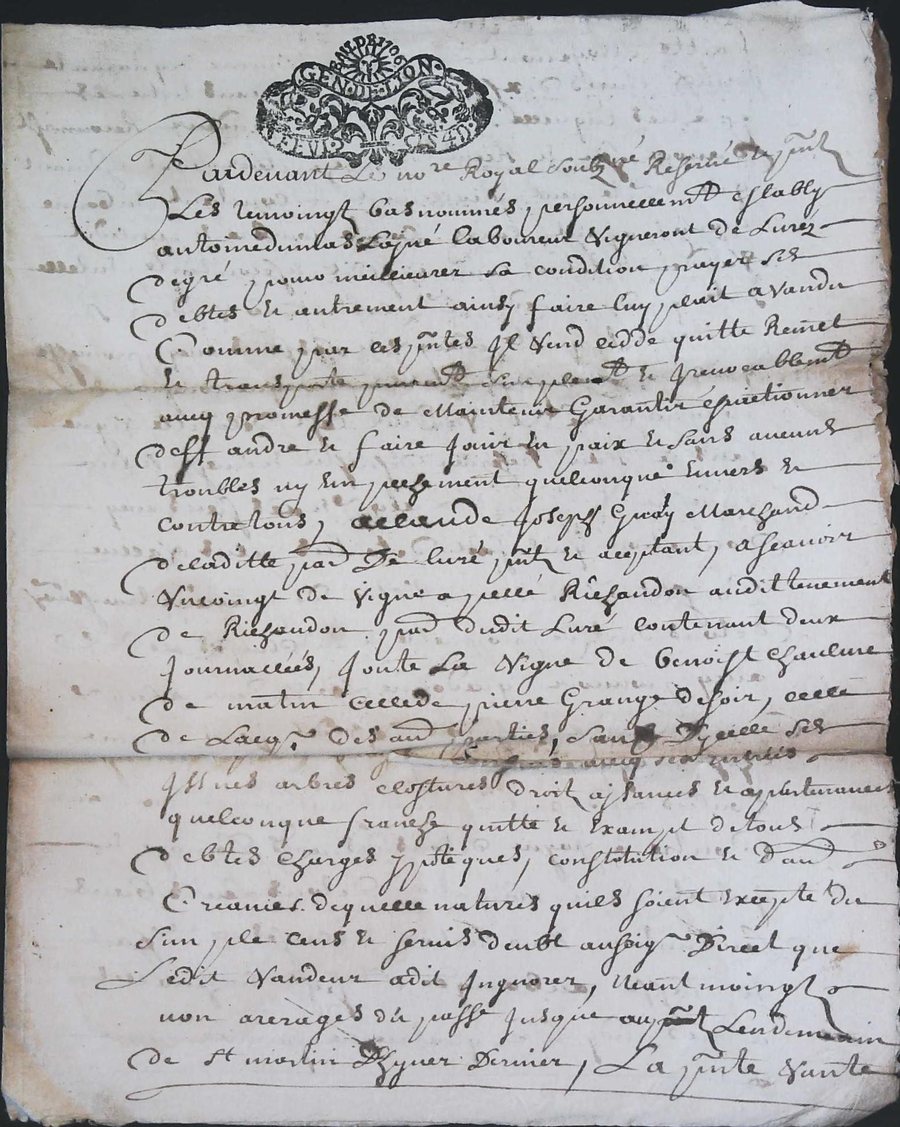 GEN·DE·LION
Pardevant Le no.re Royal soubz.né Reservé & p.nt
Les temoingt bas nommés, personnellem.t establÿ
antome dumas Laÿné laboureur vigneront de Luré
de gré, pour meillieurer sa condition, payer ses
debtes et autrement ainsÿ faire luy plait a vandu
Comme par ces p.ntes Jl vend cedde quitte Remet
et transporte purem.t simplem.t et jrevocablem.t
avecq promesse de Maintenir Garantir
deffandre et faire jouir en paix et sans aucuns
troubles nÿ empechement quelconque envers et
contre tous, Joseph Marchand
de laditte par. De luré p.nt et aceptant, a scavoir
Un coingt de vigne apellé Richandon audit tenement
de Richandon par. dudit Luré contenant deux
journallées, joute La vigne de benoist
de matin celle de pierre Grange de soir, celle
de Lacq.r des au.t parties, Dÿcelle ses
entrées
jssues arbres clostures droit aÿsances et apartenances
quelconque franche quitte et exampt de tous
debtes charges ypoteques, constitution et d'au.
Creanies de quelle natures quils soient excepte du
simple cens et servis deubt au seig.r Direct que
Ledit vandeur adit jngnorer, neant moingt
non arerages du passé jusque au p.nt Lendemain
de st martin Dhÿver Dernier, La p.nte vante